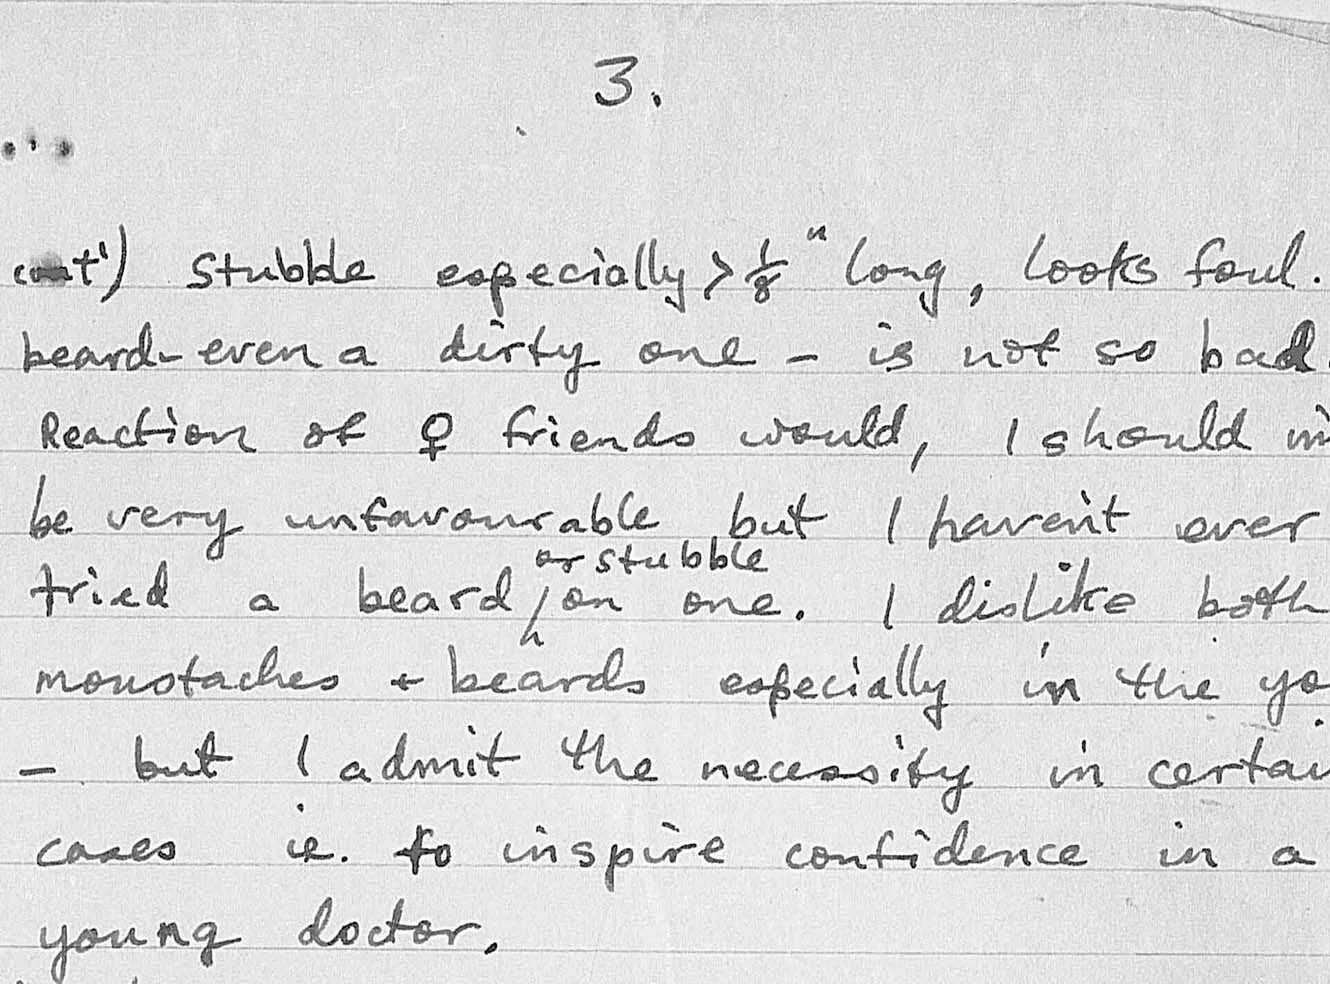 3.
...
cont') Stubble especially > 1/8" long, looks foul.
beard - even a dirty one - is not so bad.
Reaction of ♀ friends would, I should
be very unfavourable but I haven't ever
or stubble
tried a beard / on one. I dislike both
moustaches + beards especially in the yo
- but I admit the necessity in certai
cases ie. to inspire confidence in a
young doctor.